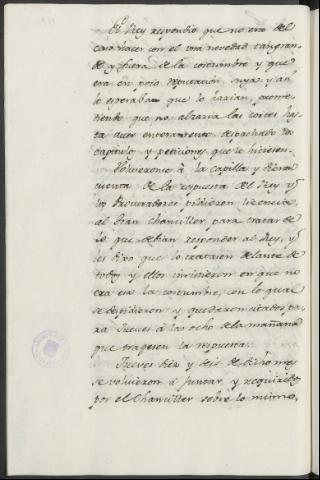 El Rey respondio que no era del
caso hacer con el una novedad tan gran
de y fuera de la costumbre y que
era en poca reputacion suya y asi
lo esperaba que lo harian, prome
tiendo que no alzaria las cortes has
ta aver enteramente despachado los
capitulos y peticiones que le hiciesen.
Volvieronse à la capilla y dieron
cuenta de la respuesta del Rey y
los Procuradores pidieron licencia
al Gran Chanciller para tratar de
lo que debian responder al Rey, y
les dixo que lo tratasen delante de
todos y ellos insistieron en que no
era esa la costumbre, con lo qual
se despidieron y quedaron citados pa
ra Jueves à las ocho de la mañana
que tragesen la respuesta.
Jueves diez y seis de dicho mes
se volvieron à juntar y requeridos
por el Chanciller sobre lo mismo,